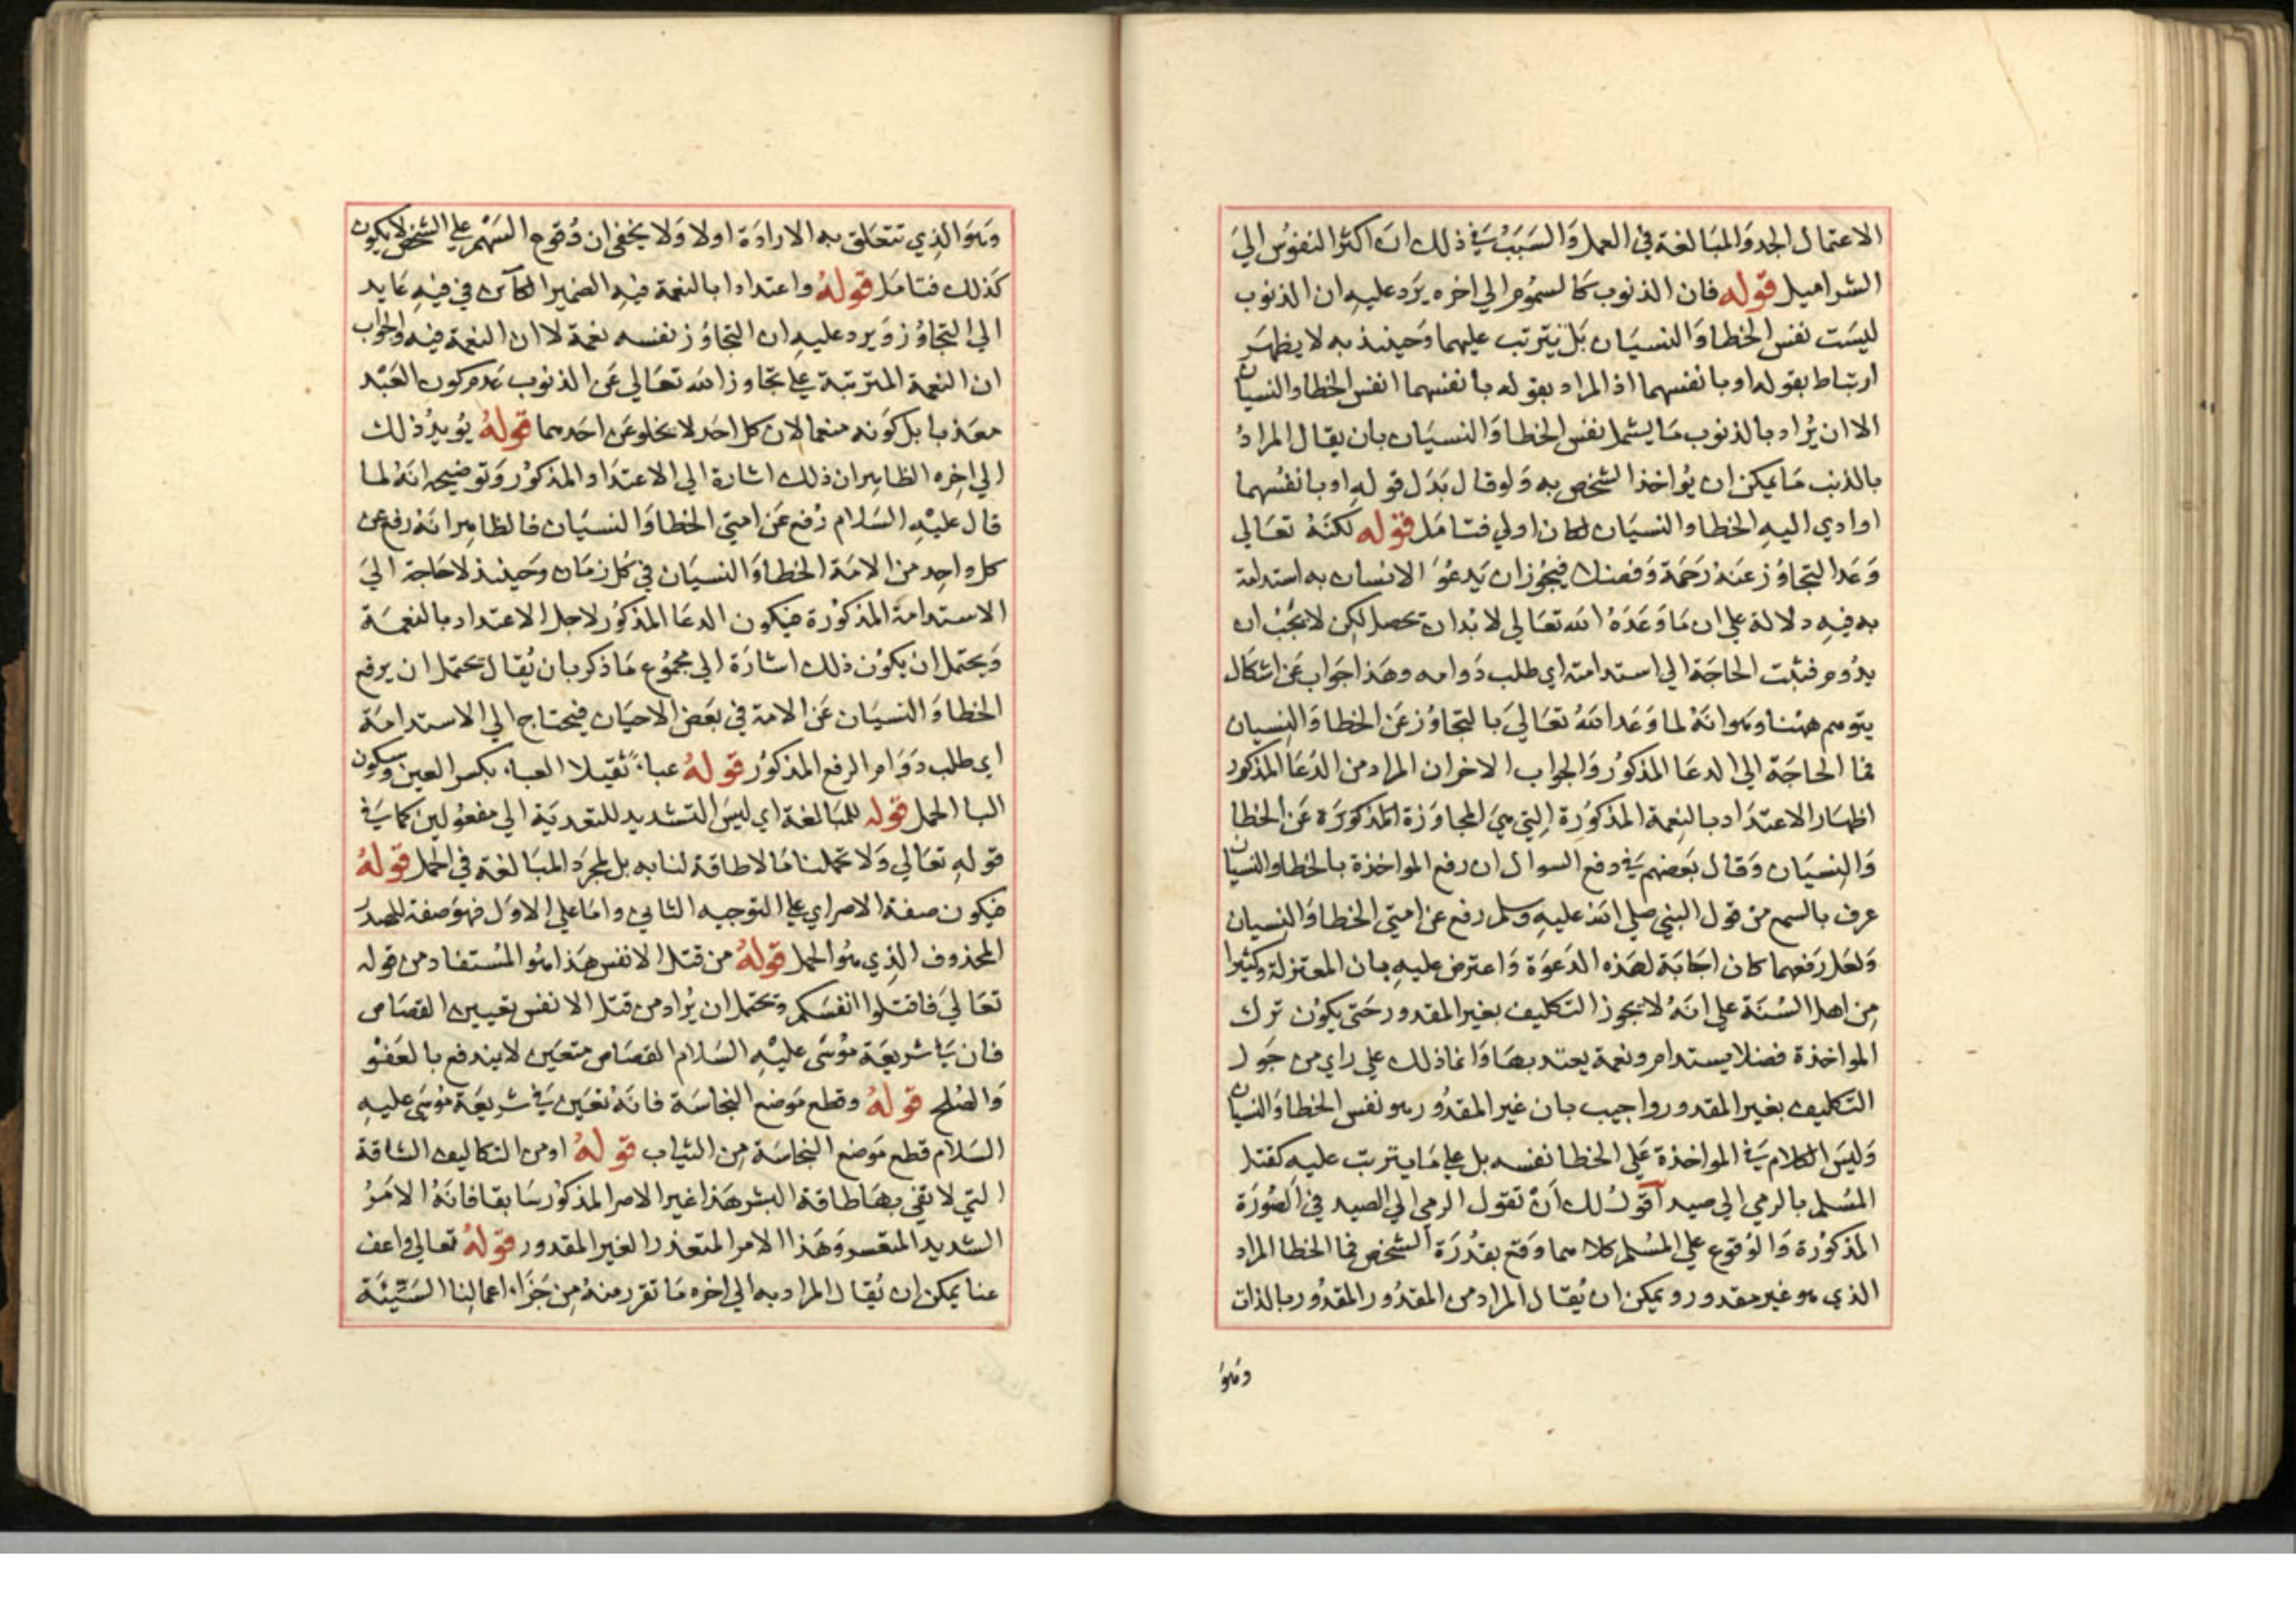 الاعتمال الجد وَالمبَالغة في العمل وَالسَبَبُ فيَ ذلك ان اكثرُ النفوُس اليَ
الشر اميل قوله فان الذنوب كالسمُوم الي اخره يَرد عليهِ ان الذنوب
ليسَت نفس الخطا وَالنسيَان بَل يترتب عليهما وَحينئذ به لا يظهَر
ارتباط بقوله او بانفسهما اذ المراد بقوله بانفسهما انفس الخطا والنسيان
الا ان يُراد بالذنوب مَا يشمل نفس الخطا وَالنسيَان بان يقال المرادُ
بالذنب مَا يمكن ان يُواخذ الشخص به وَلو قال بَدَل قولهِ او بانفُسهما
او ادي اليهِ الخطا والنسيَان لكان اولي فتامَل قوله لكنهُ تعَالي
وَعَد التجاوُز عَنهُ رَحَمة وَفضلا فيجُوز ان يَدعُوَ الانسان به استدامة
به فيهِ دلالة علي ان مَا وَعَدَهُ الله تعَالي لا بُد ان تحصل لكن لا يجُبْ ان
يدُوم فثبت الحاجَة الي استدامته اي طلب دَوامه وهَذا جَوابٌ عَن اشكال
يتوهم ههُنا وهو انهُ لما وَعَد اللهُ تعَاليَ بالتجاوُز عَن الخطا وَالنِسيان
فما الحاجَة الي الدعَا المذكوُر وَالجواب الاخر ان المراد من الدُعَا المذكور
اظهَار الاعتدَاد بالنِعمة المذكوُرة التي هيَ المجاوَزة المذكورَة عَن الخطا
وَالنِسيَان وَقال بَعضهم في دفع السوال ان رفع المواخذة بالخطا والنسيان
عرف بالسمع من قول النبي صلي الله عليهِ وسلم رفع عن امتي الخطا وَالنِسيان
وَلعَل رَفعهما كان اجَابَة لهَذه الدَعوَة وَاعترض عليهِ بان المعتزلة وكثيرا
مِن اهل السُنَة علي انهُ لا يجوز التكليف بغير المقدور حَتي يكوُن ترك
المواخذة فضلا يستدام ونعمة يعتد بهَا وَانما ذلك علي راي من جَوز
التكليف بغير المقدور واجيب بان غير المقدُور هو نفس الخطا وَالنسيان
وَليسَ الكلام في المواخذة عَلي الخطا نفسه بل علي مَا يترتب عليه كقتل
المسُلم بالرمي الي صيد اقولُ لك اَنْ تقول الرمي الي الصيد في الصُورَة
المذكوُرة وَالوُقوع علي المسُلم كلاهما وَقع بقدُرَة الشخص فما الخطا المراد
الذي هو غير مقدور ويمكن ان يُقال المراد من المقدُور المقدُور بالذات
وَهوَ
وَهوَ الذِي تتعَلق به الارادَة اولا وَلا يخفي ان وُقوع السَهم علي الشخص لا يكون
كذلك فتامَل قولهُ واعتدادا بالنعمة فيهِ الضمير الكاَئن في فيهِ عَايد
الي التجاوُز وَيرد عليهِ ان التجاوُز نفسه نعمة لا ان النعمة فيه والجواب
ان النعمة المترتبة علي تجَاوز الله تعَالي عَن الذنوب عَدم كون العَبْد
معَذبا بل كوَنه منعما لان كل احَد لا يخلو عَن احَدهما قولهُ يُويدُ ذلك
الي اخِره الظاهِر ان ذلك اشارة الي الاعتدَاد المذكوُر وَتوضيحه انهُ لما
قال عليْهِ السَلام رُفع عَن امتي الخطا وَالنسيَان فالظاهِر انهُ رفع عن
كل واحِد من الامَة الخطا وَالنسيَان في كُل زمَان وحَينئذ لا حَاجة اليَ
الاستدامة المذكوُرة فيكون الدعَا المذكوُر لاجل الاعتداد بالنعمَة
وَيحتمل ان يكوُن ذلك اشارَة الي مجموُع مَا ذكر بان يُقال يحتمل ان يرفع
الخطا وَالنسيَان عَن الامة في بعَض الاحيَان فيحتاج الي الاستدامَة
اي طلب دَوَام الرفع المذكوُر قولهُ عباءً ثقيلا العباء بكسر العين وسكون
البا الحمل قوله للمبَالغة اي ليسَ التشديد للتعديَة الي مفعوُلين كما في
قولهِ تعَالي وَلا تحملنا مَا لا طاقة لنا به بل لمجرَد المبَالغة في الحمل قولهُ
فيكون صفة الاصر اي علي التوجيه الثاني وامَا علي الاوَل فهوَ صفة للمصدر
المحذوف الذِي هُو الحمل قولهُ من قتل الانفس هَذا هُو المسُتفاد من قوله
تعَاليَ فاقتلوا انفسَكم وَيحتمل ان يُراد من قتل الانفس تعيين القصَاص
فان في شريعَة موُسَي عليْهِ السَلام القصَاص متعَين لا يندفع بالعَفوْ
وَالصُلح قولهُ وقطع مَوضع النجاسَة فانهُ تعَين في شريعَة موُسَي عليهِ
السَلام قطع مَوضع النجَاسَة مِن الثياب قولهُ او من التكاليف الشاقة
التي لا تفي بهَا طاقة البشر هَذا غير الاصر المذكوُر سَابقا فانهُ الامَرُ
الشديد المتعَسر وَهَذا الامر المتعَذر الغير المقدور قولهُ تعالي واعف
عنا يمكن ان يُقال المراد به الي اخره مَا تقرر منهُ مِن جَزَاء اعمالِنا السَيّئة